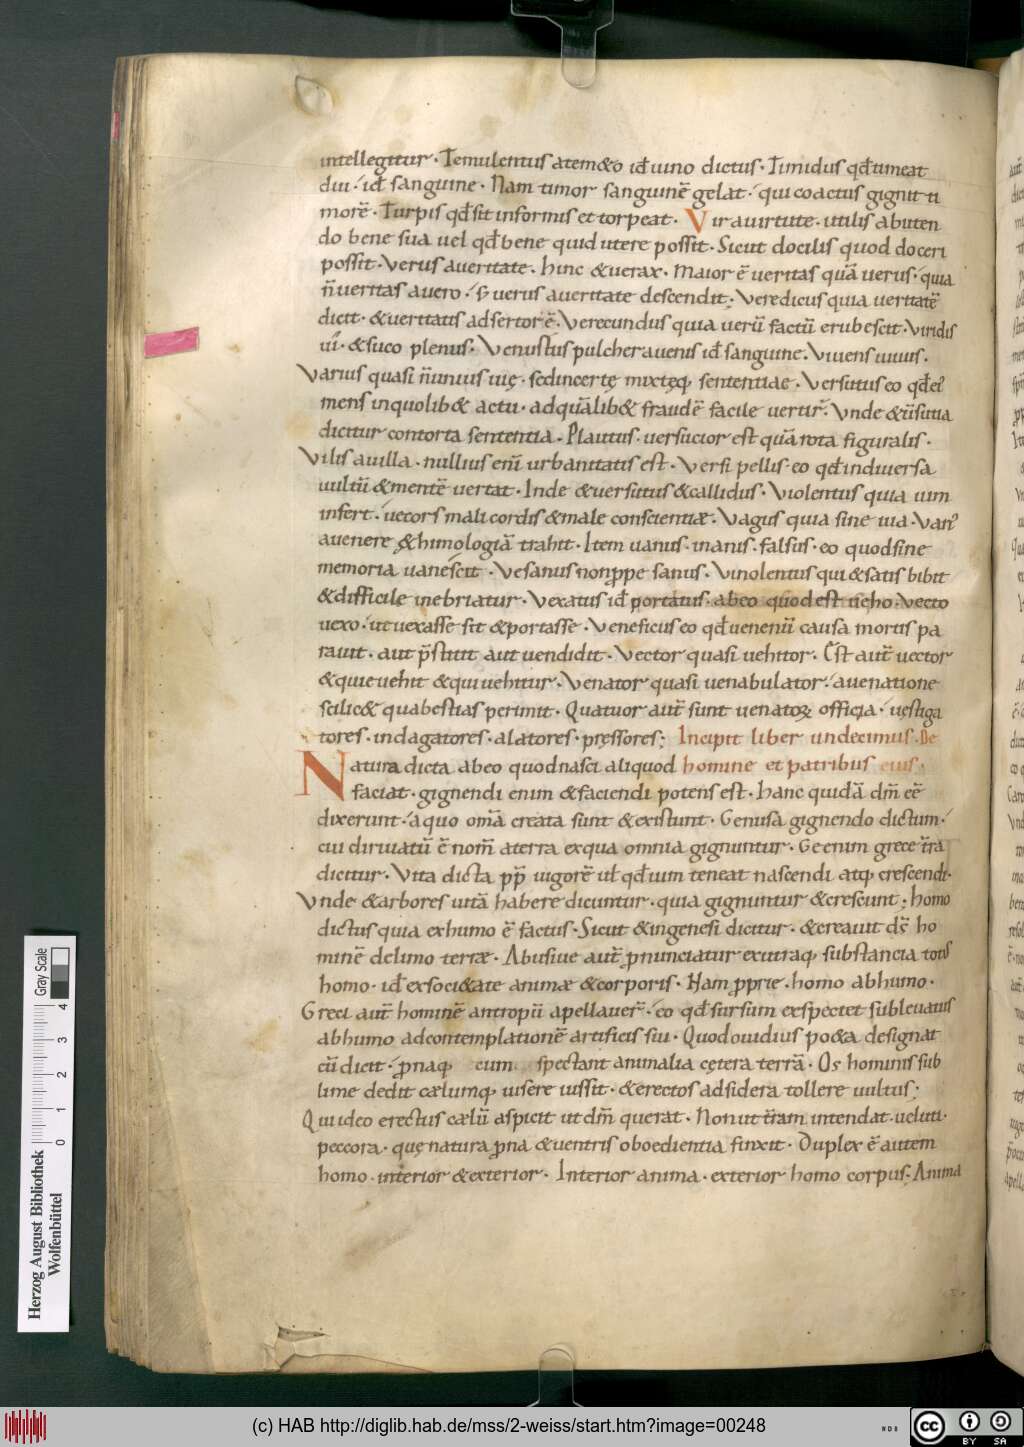 intellegitur · Temulentus a temeto id̄ uino dictus · Timidus qd̄ timeat
diu · id̄ sanguine · Nam timor sanguinē gelat · qui coactus gignit ti
morē · Turpis qd̄ sit informis et torpeat · Vir a uirtute · utilis ab uten
do bene sua uel qd̄ bene quid utere possit · Sicut docilis quod doceri
possit · Verus a ueritate · hinc & uerax · Maior ē ueritas quā uerus · quia
n̄ ueritas a uero · s; uerus a ueritate descendit; Veredicus quia ueritatē
dicit · & ueritatis adsertor ē · Verecundus quia uerū factū erubescit · Viridis
ui · & suco plenus · Venustus pulcher a uenis id̄ sanguine · Viuens uiuus ·
Varius quasi n̄ unius uię · sed incertę mixtęq; sententiae · Versutus eo qd̄ ei'
mens in quolib& actu · ad quālib& fraudē facile uertit̄ · Vnde & ūsutia
dicitur contorta sententia · Plautus · uersutior est quā rota figuralis ·
Vilis a uilla · nullius enī urbanitatis est · Versipellis eo qd̄ in diuersa
uultū & mentē uertat · Inde & uersutus & callidus · Violentus quia uim
infert · uecors mali cordis & male conscientiæ · Vagus quia sine uia · Van'
a uenere & himologiā trahit · Item uanus · inanis · falsus · eo quod sine
memoria uanescit · Vesanus non ꝓpe sanus · Vinolentus qui & satis bibit
& difficile inebriatur · Vexatus id̄ portatus · ab eo quod est ueho · Vecto
uexo · ut uexasse sit & portasse · Veneficus eo qd̄ uenenū causa mortis pa
rauit · aut p̄stitit aut uendidit · Vector quasi uehitor · Est aut̄ uector
& qui euehit & qui uehitur · Venator quasi uenabulator · a uenatione
scilic& qua bestias perimit · Quatuor aut̄ sunt uenatoꝝ officia · uęstiga
tores · indagatores · alatores · pręssores; Incipit liber undecimus · De
Natura dicta ab eo quod nasci aliquod homine et patribus eius ·
faciat · gignendi enim & faciendi potens est · hanc quidā dm̄ eē
dixerunt · a quo omā creata sunt & existunt · Genus a gignendo dictum ·
cui diriuatū ē nom̄ a terra ex qua omnia gignuntur · Ge enim grece t̄ra
dicitur · Vita dicta ꝓp̄ uigorē ul̄ qd̄ uim teneat nascendi atq; crescendi ·
Vnde & arbores uitā habere dicuntur · quia gignuntur & crescunt; homo
dictus quia ex humo ē factus · Sicut & in genesi dicitur · & creauit dš ho
minē de limo terræ · Abusiue aut̄ ꝓnunciatur ex utraq; substancia tot'
homo · id̄ ex soci&ate animæ & corporis · Nam ꝓprie · homo ab humo ·
Greci aut̄ hominē antropū apellauer̄ · eo qd̄ sursum exspectet subleuatus
ab humo ad contemplationē artificis sui · Quod ouidius po&a designat
cū dicit · ꝓnaq; cum spectant animalia cętera terrā · Os hominis sub
lime dedit cælumq; uisere iussit · & erectos ad sidera tollere uultus;
Qui ideo erectus cælū aspicit ut dm̄ querat · Non ut t̄ram intendat · ueluti ·
peccora · quę natura ꝓna & uentris oboedientia finxit · Duplex ē autem
homo · interior & exterior · Interior anima · exterior homo corpus; Anima
Gray Scale
0 1 2 3 4
Herzog August Bibliothek
Wolfenbüttel
(c) HAB http://diglib.hab.de/mss/2-weiss/start.htm?image=00248
cc BY SA